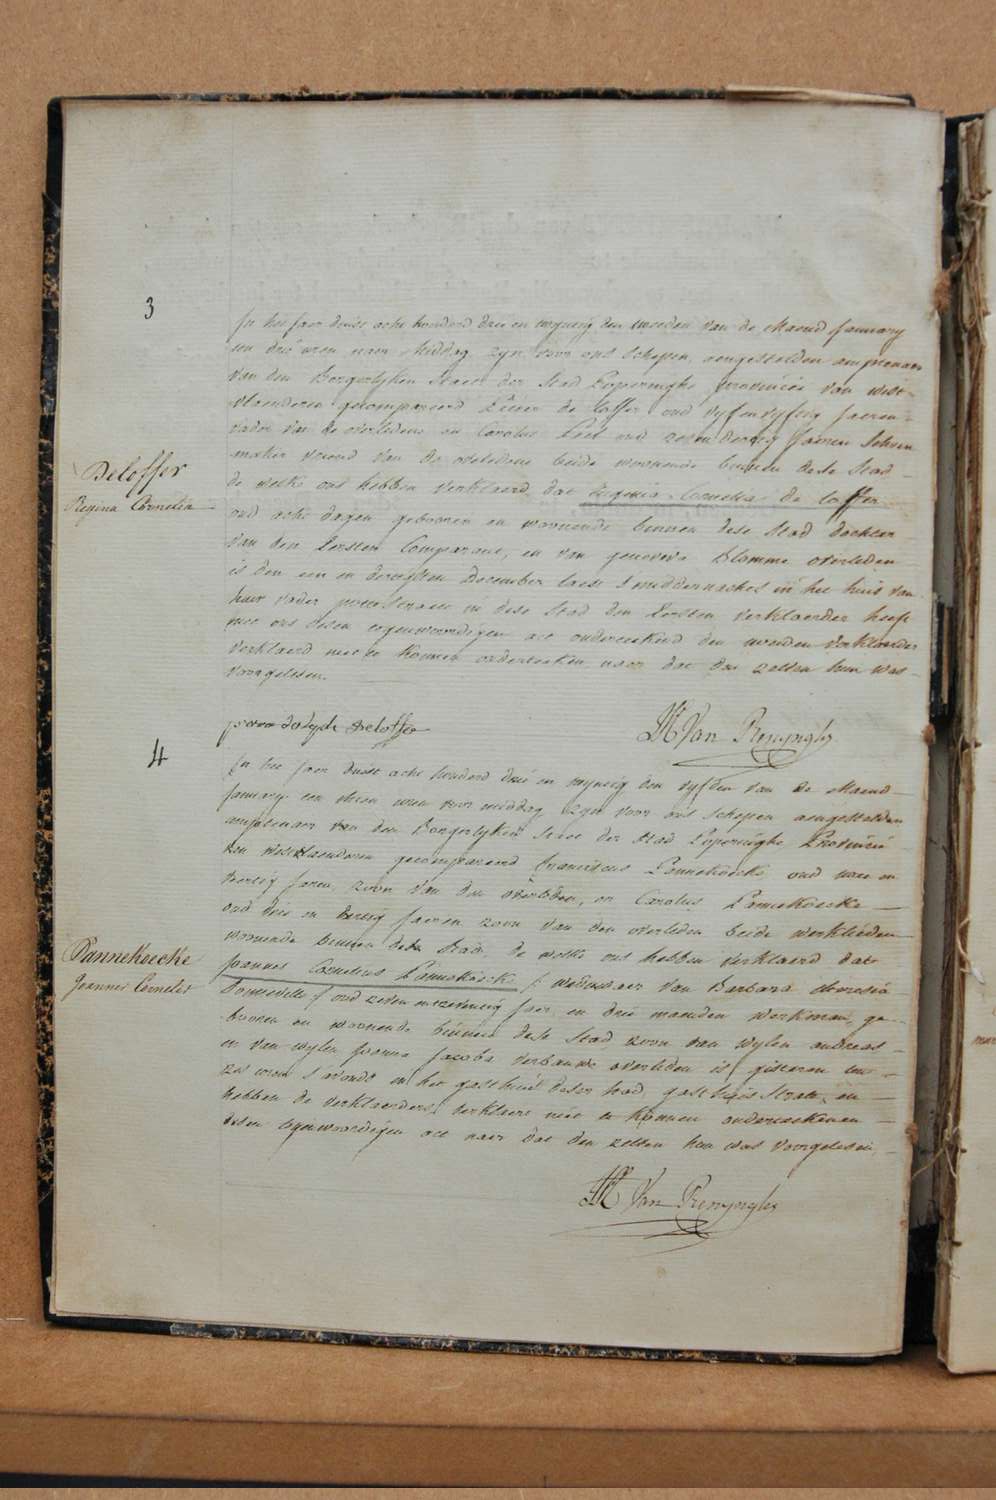 3
In het Jaer duist acht honderd drie en twyntig den tweeden van de Maend January
ten drie uren naer Middag zyn voor ons schepen aengestelden amptenaer
van den Borgerlyken Staet der Stad Poperinghe provincie van west-
vlaenderen gecompareerd Pieter de Loffer oud vyfenvyftig Jaeren
vader van de overledene en Carolus oud zevenderig Jaeren schoen
maker vriend van de overledene beide woonende binnen dese Stad
de welke ons hebben verklaerd dat Regina Cornelia de Loffer
Deloffer
Regina Cornelia
oud acht dagen gebooren en woonende binnen dese Stad dochter
van den Eersten Comparant, en van genoveva Blomme overleden
is den een en dertigsten December laest s middernachts in het huis van
haer vader in dese Stad den Eersten verklaerder heeft
met ons desen tegenwoordigen act onderteekend den tweeden verklaerder
verklaerd niet te konnen onderteeken naer dat den zelven hun was
voorgelesen.
Deloffer
M Van Renynghe
4
In het Jaer duist acht honderd drie en twyntig den vyfden van de Maend
January ten uren voor middag zyn voor ons schepen aengestelden
amptenaer van den Borgerlyken Staet der Stad Poperinghe Provincie
van westvlaenderen gecompareerd Franciscus Pannekoecke oud twee en
veertig Jaeren, zoon van den overleden, en Carolus Pannekoecke
oud drie en dertig Jaeren zoon van den overleden beide werklieden
woonende binnen dese Stad, de welke ons hebben verklaerd dat
Pannekoecke
Joannes Cornelis
Joannes Cornelius Pannekoecke weduwaer van Barbara theresia
oud zeven en zeventig Jaer en drie maenden werkman, ge-
booren en woonende binnen dese Stad zoon van wylen andreas
en van wylen Joanna Jacoba verbauwe overleden is gisteren ten
zes uren s'avonds in het gasthuis deser stad, gasthuis Straete, en
hebben de verklaerders verklaert niet te konnen onderteekenen
desen tegenwoordigen act naer dat den zelven hun was voorgelesen,
M Van Renynghe